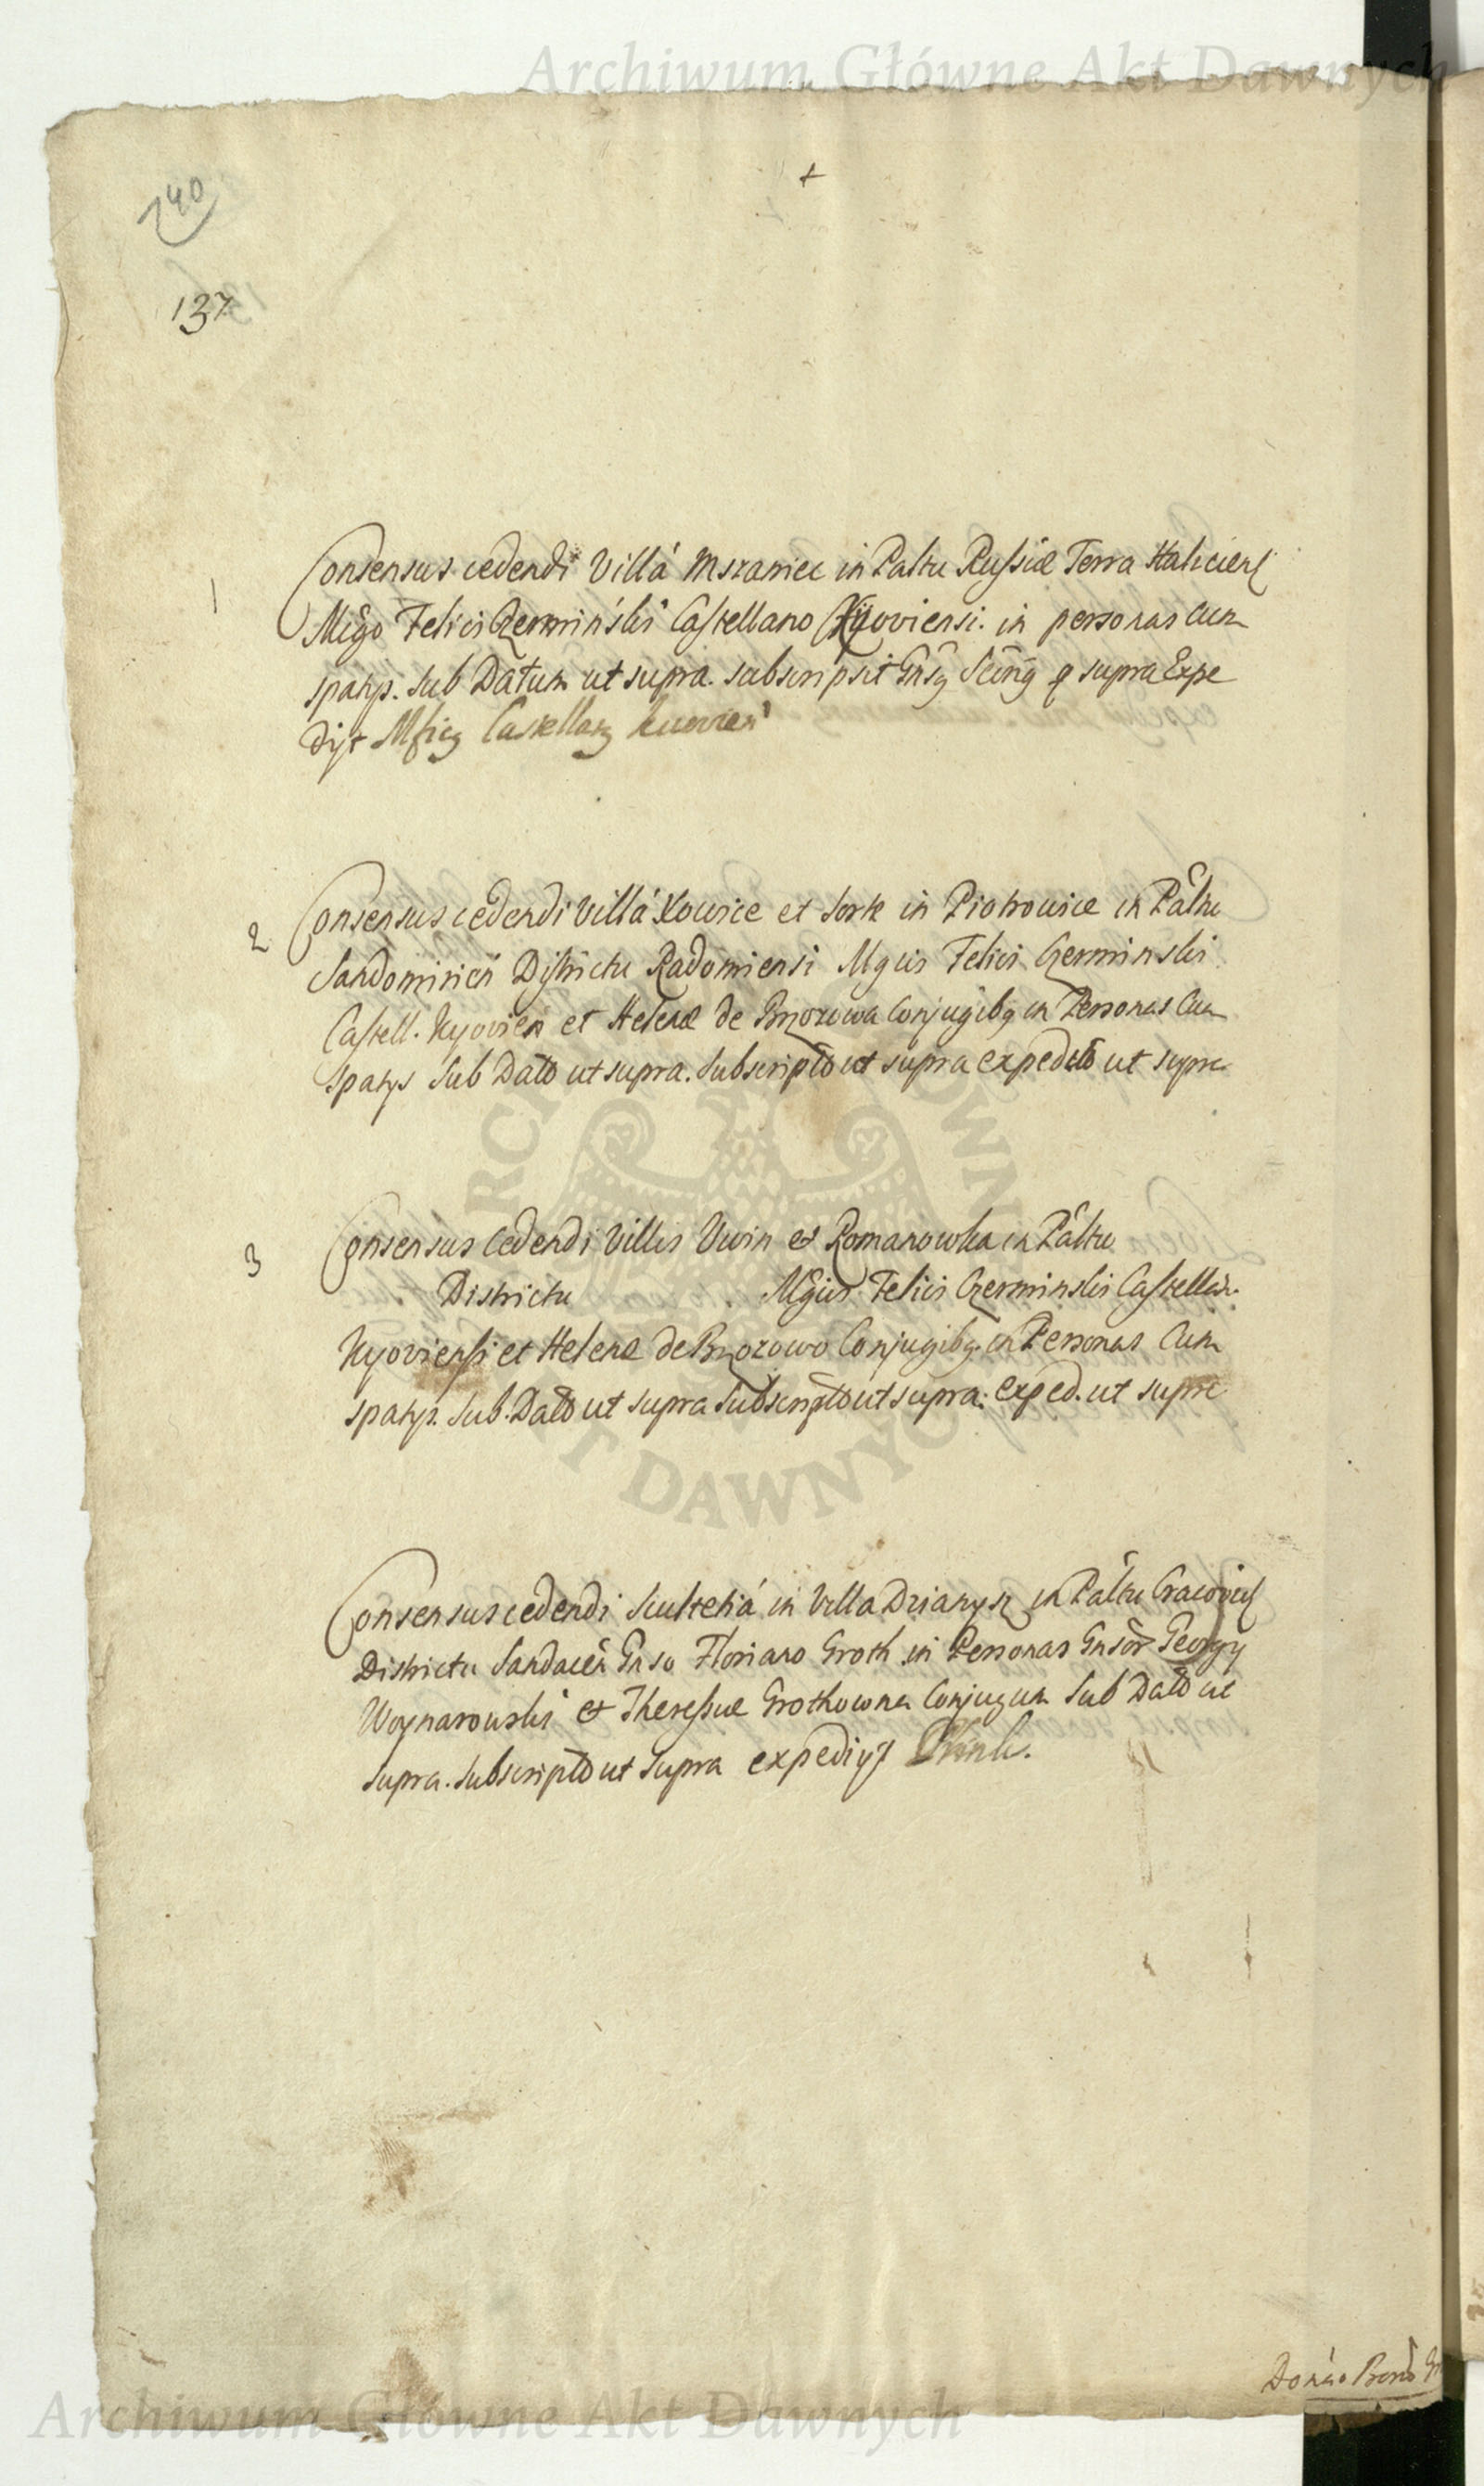 Archiwum Główne Akt Dawnych
240
137
1
Consensus cedendi Villá Mszaniec in Paltu Russiæ Terra Haliciens
Mgo Felici Czerminski Castellano Kyoviensi. in personas cum
spatys. Sub Datum ut supra. subscripsit Gnsq q supra Expe
dijt Castellanq
2
Consensus cedendi villá et sorte in Piotrowice in Paltu
Sandomirien Districtu Radomiensi Mgcis Felici Czerminski
Castell. Kyovien et Helenæ de Brzozowa Conjugibq in Personas Cum
spatys Sub Dato ut supra. Subscripto ut supra expedito ut supra
3
Consensus Cedendi Villis Uwin et Romanowka in Paltu
Districtu Mgcis Felicis Czerminskis Castellan.
Kyoviensi et Helenæ de Brzozowo Conjugibq in Personas Cum
spatys. Sub. Dato ut supra Subscripto ut supra. exped. ut supra
Consensus cedendi Scultetiá in Villa Dzianysz in Paltu Cracovien
Districtu Sandacen Gnso Floriano Groth in Personas Gnsor Georgy
Woynarowski et Theressæ Grothowna Conjugum Sub Dato ut
supra. subscripto ut supra expediyt
ARCHIWUM GŁÓWNE AKT DAWNYCH
Archiwum Główne Akt Dawnych